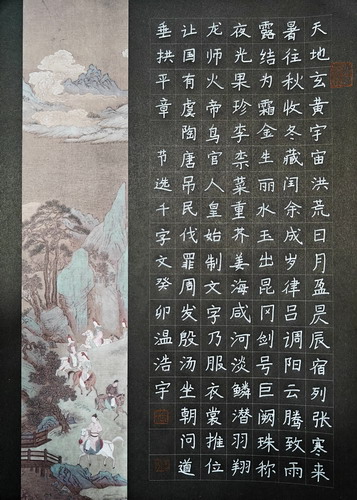 天地玄黄宇宙洪荒日月盈昃辰宿列张寒来
暑往秋收冬藏闰余成岁律吕调阳云腾致雨
露结为霜金生丽水玉出昆冈剑号巨阙珠称
夜光果珍李柰菜重芥姜海咸河淡鳞潜羽翔
龙师火帝鸟官人皇始制文字乃服衣裳推位
让国有虞陶唐吊民伐罪周发殷汤坐朝问道
垂拱平章 节选千字文癸卯温浩宇